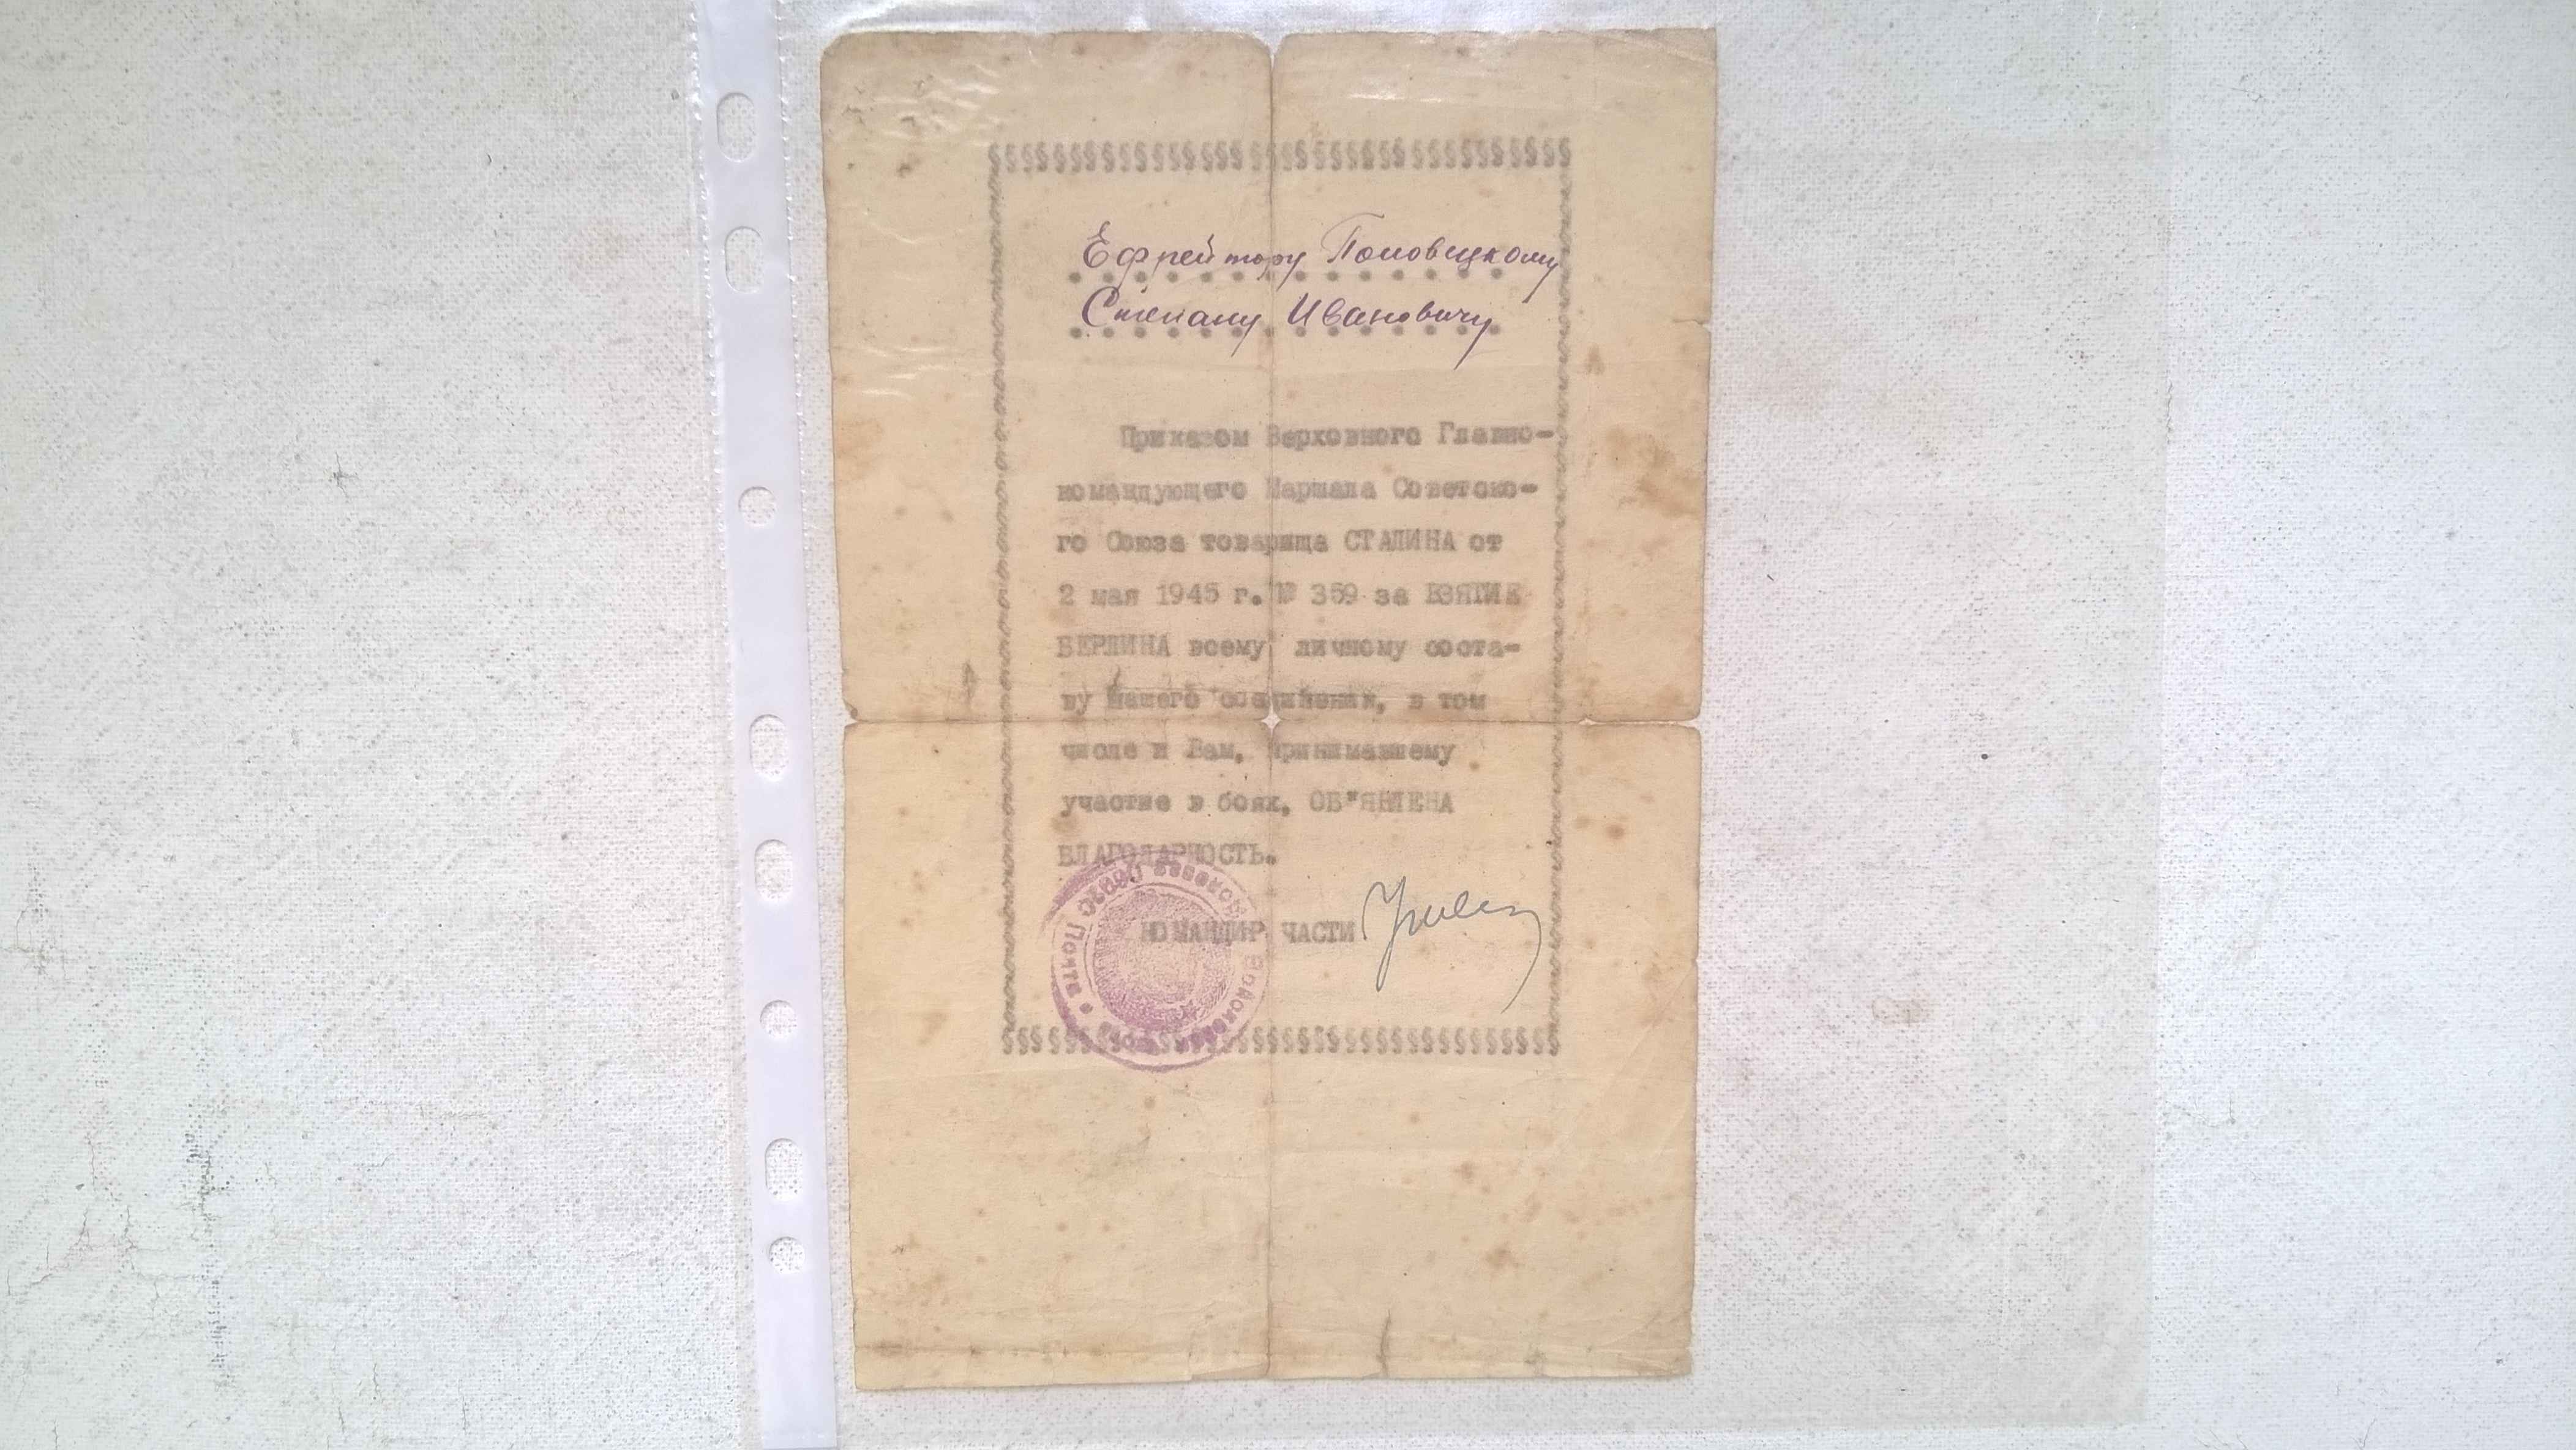 §§§§§§§§§§§§§§§§§§§§§§§§§§§§§§§§§§§§
Ефрейтору
Степану Ивановичу
Приказом Верховного Главно-
командующего Маршала Советско-
го Союза товарища СТАЛИНА от
2 мая 1945 г. № 359 за ВЗЯТИЕ
БЕРЛИНА всему личному соста-
ву нашего соединения, в том
числе и Вам, принимавшему
участие в боях, ОБ"ЯВЛЕНА
БЛАГОДАРНОСТЬ.
КОМАНДИР ЧАСТИ
Войсковая часть Полевая Почта